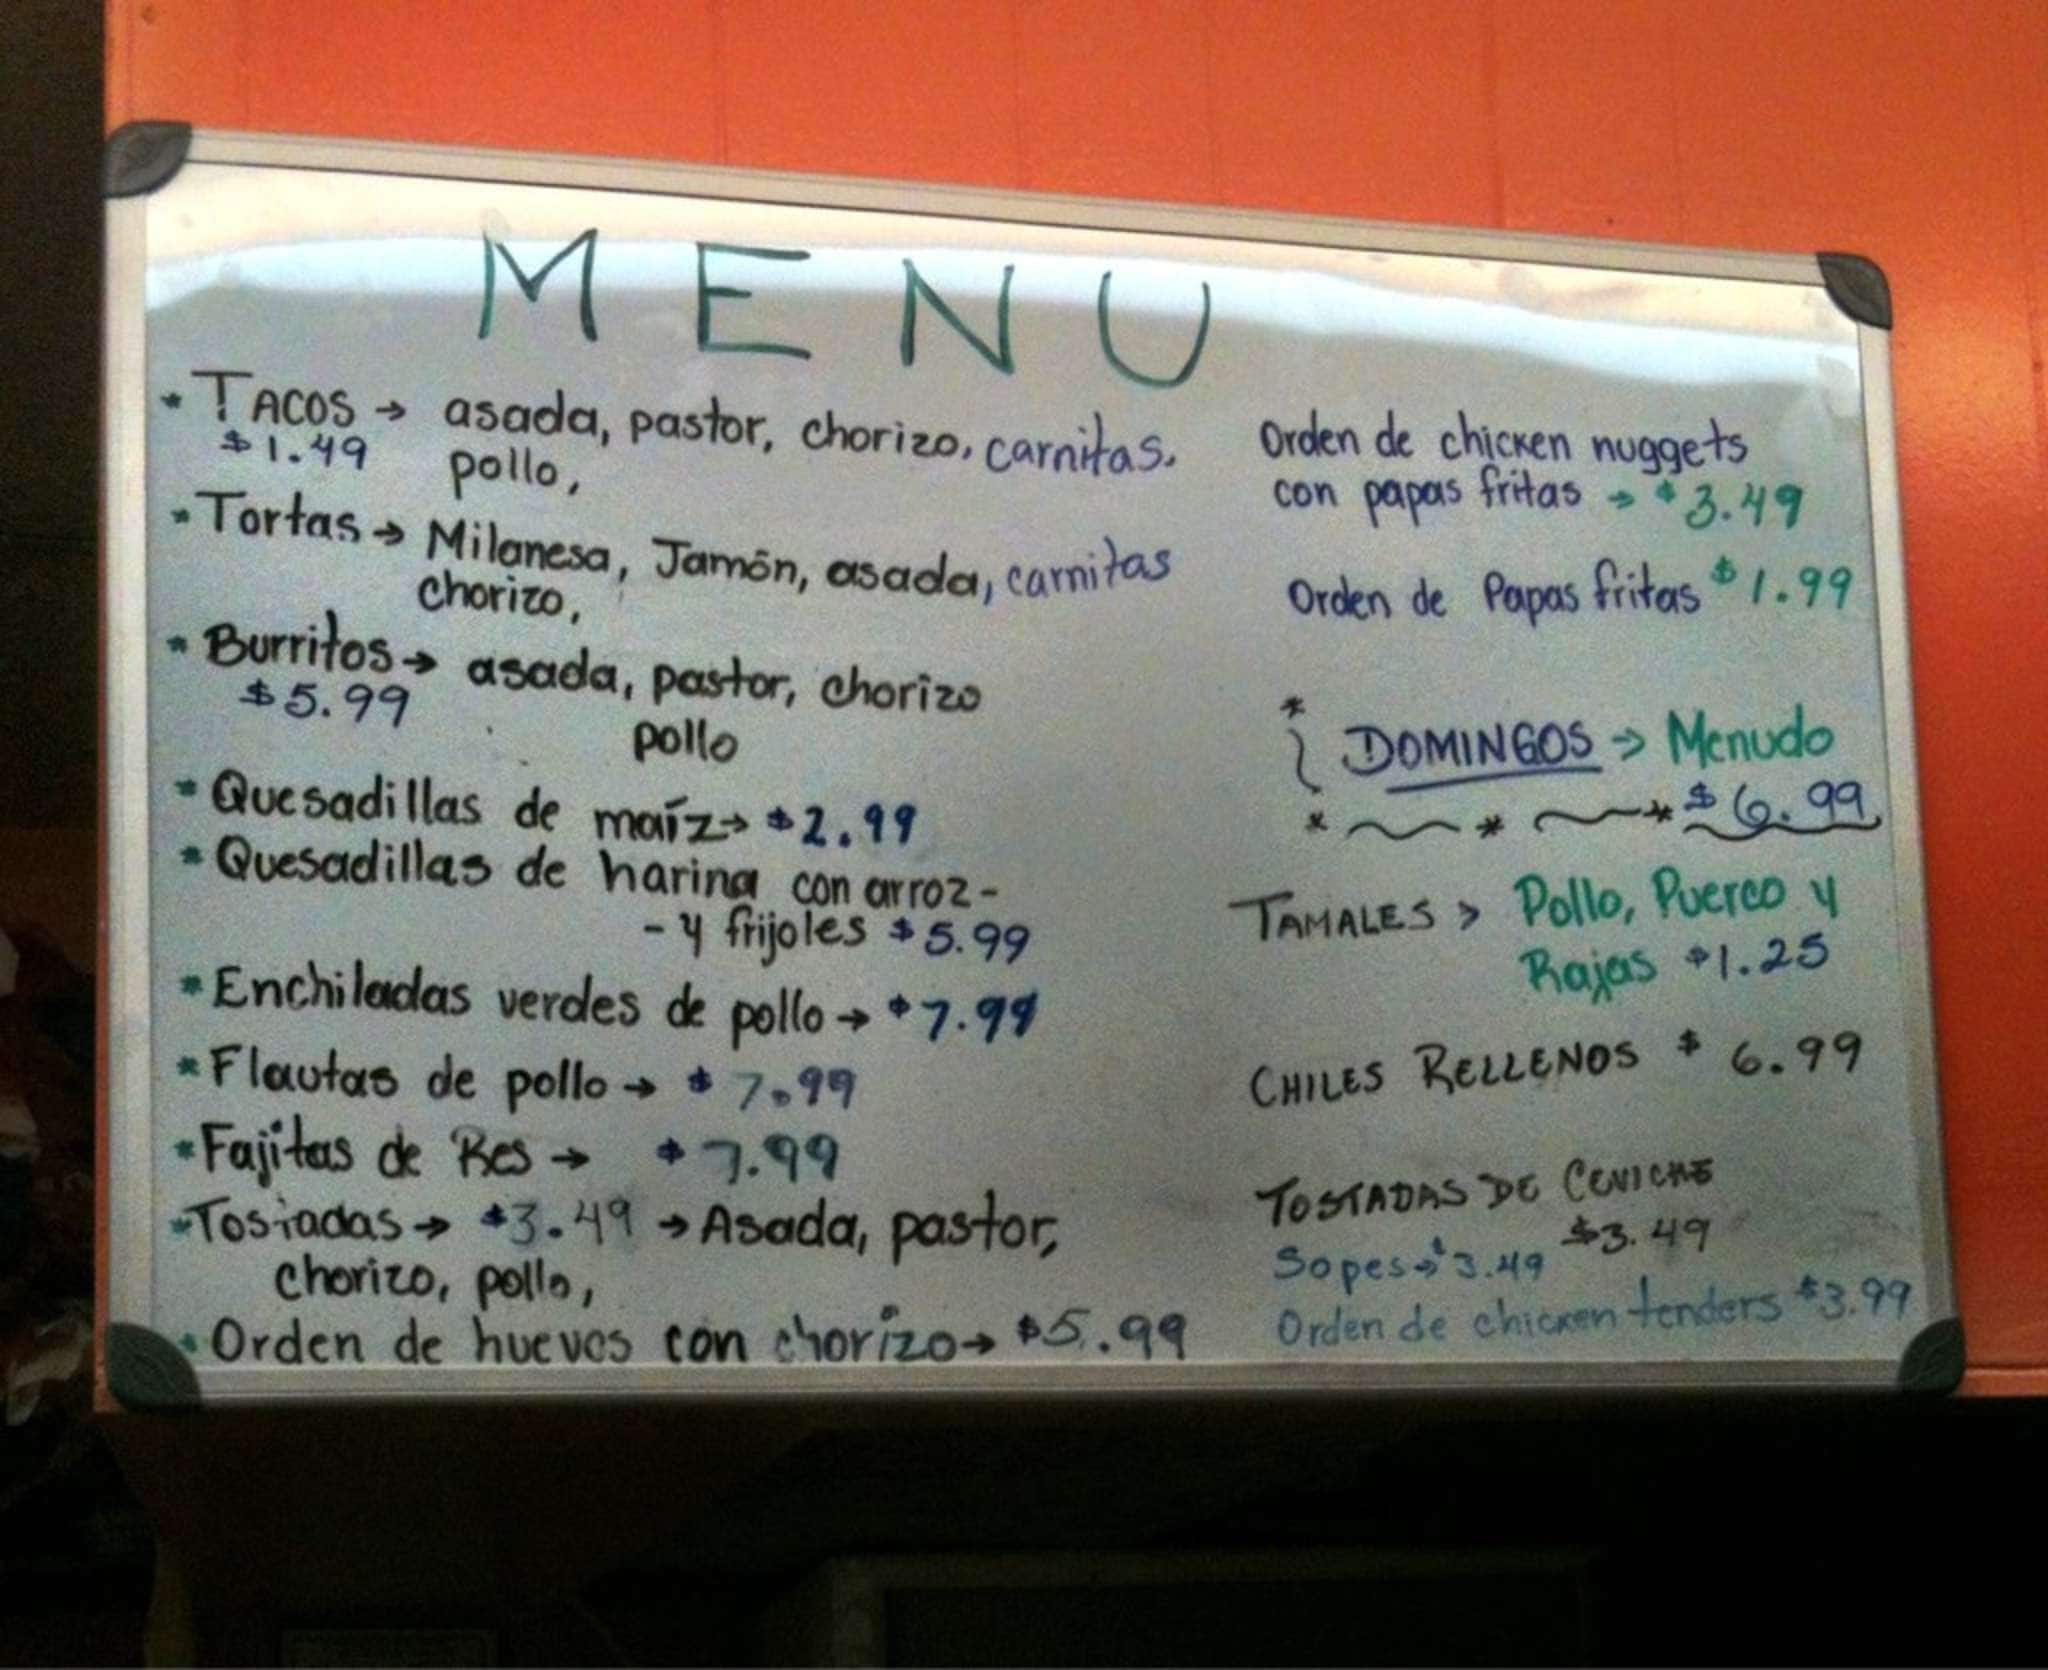 MENU
* TACOS → asada, pastor, chorizo, carnitas.
$1.49 pollo,
* Tortas → Milanesa, Jamón, asada, carnitas
chorizo,
* Burritos → asada, pastor, chorizo
$5.99 pollo
* Quesadillas de maíz → $2.99
* Quesadillas de harina con arroz -
- y frijoles $5.99
* Enchiladas verdes de pollo → $7.99
* Flautas de pollo → $7.99
* Fajitas de Res → $7.99
* Tostadas → $3.49 → Asada, pastor,
chorizo, pollo,
* Orden de huevos con chorizo → $5.99
Orden de chicken nuggets
con papas fritas → $3.49
Orden de Papas fritas $1.99
* DOMINGOS → Menudo
$6.99
TAMALES > Pollo, Puerco y
Rajas $1.25
CHILES RELLENOS $6.99
TOSTADAS DE CEVICHE
$3.49
Sopes → $3.49
Orden de chicken tenders $3.99